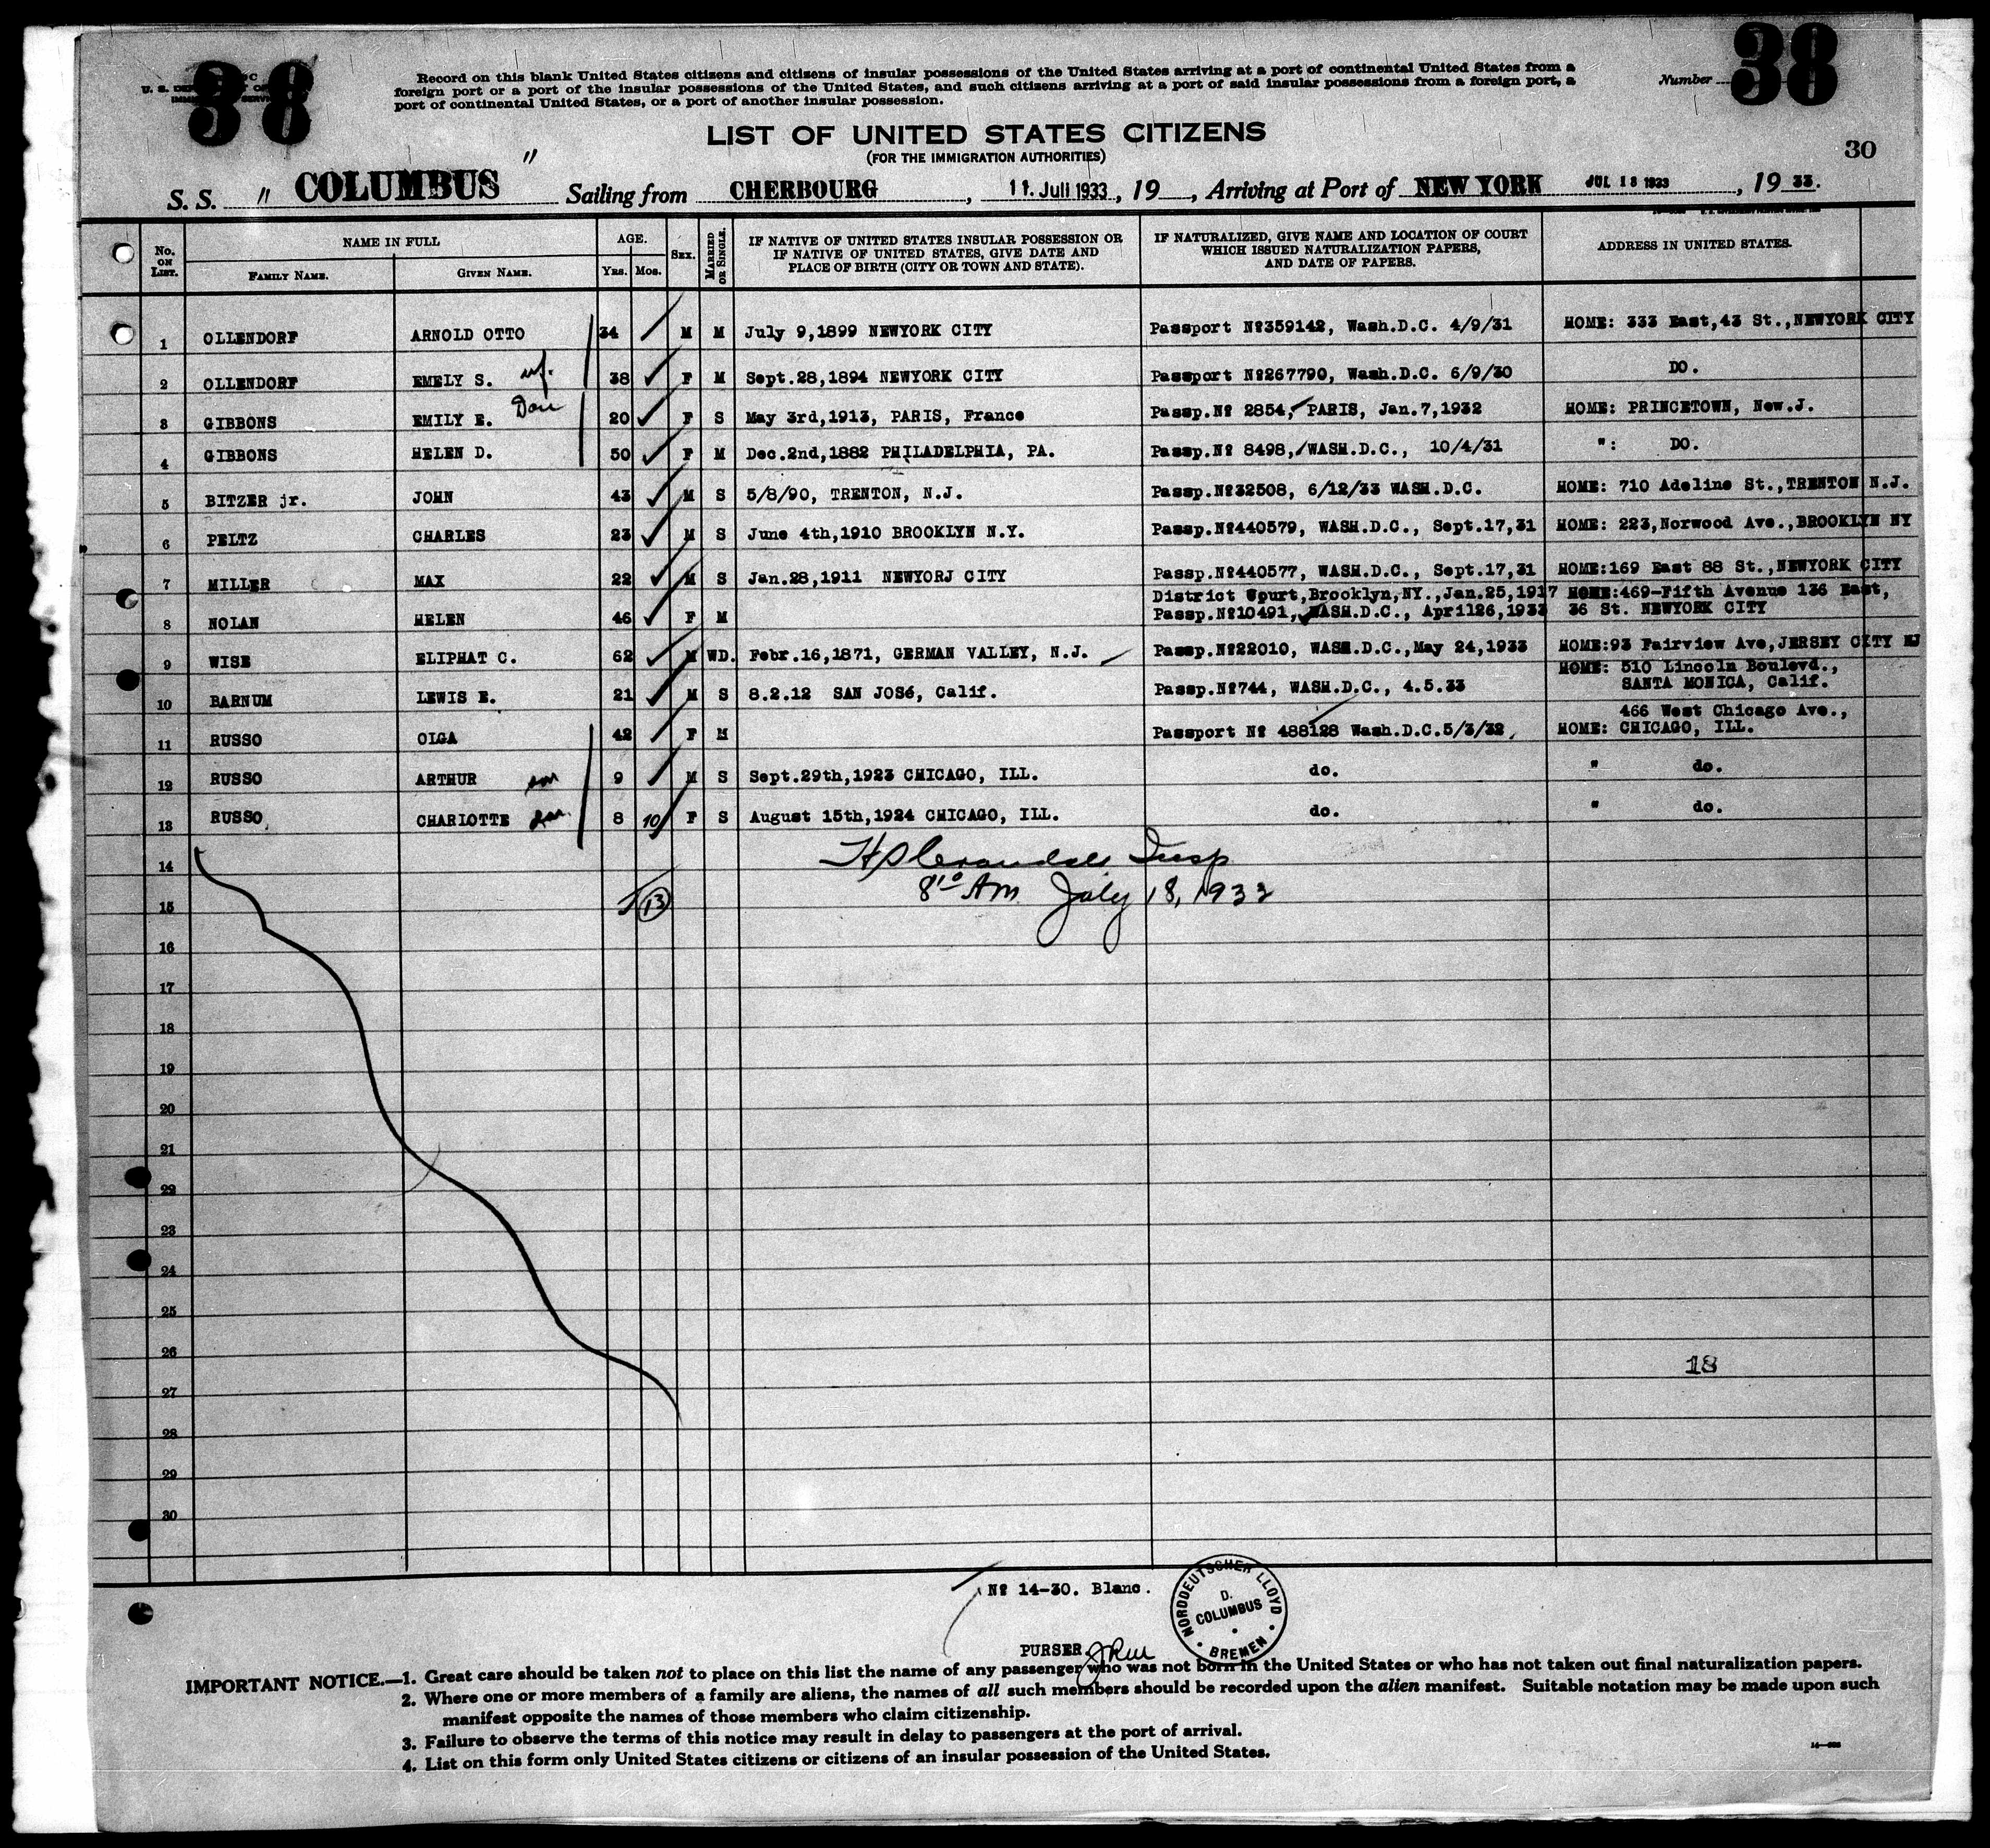 38
38
Record on this blank United States citizens and citizens of insular possessions of the United States arriving at a port of continental United States from a
foreign port or a port of the insular possessions of the United States, and such citizens arriving at a port of said insular possessions from a foreign port, a
port of continental United States, or a port of another insular possession.
Number
LIST OF UNITED STATES CITIZENS
(FOR THE IMMIGRATION AUTHORITIES)
30
S. S. " COLUMBUS " Sailing from CHERBOURG, 11. Juli 1933, 19 , Arriving at Port of NEW YORK JUL 18 1933, 19 33.
No. ON LIST. NAME IN FULL FAMILY NAME. GIVEN NAME. AGE. Yrs. Mos. SEX. MARRIED OR SINGLE. IF NATIVE OF UNITED STATES INSULAR POSSESSION OR IF NATIVE OF UNITED STATES, GIVE DATE AND PLACE OF BIRTH (CITY OR TOWN AND STATE). IF NATURALIZED, GIVE NAME AND LOCATION OF COURT WHICH ISSUED NATURALIZATION PAPERS, AND DATE OF PAPERS. ADDRESS IN UNITED STATES.
1 OLLENDORF ARNOLD OTTO 34 M M July 9,1899 NEWYORK CITY Passport Nº359142, Wash.D.C. 4/9/31 HOME: 333 East,43 St.,NEWYORK CITY
2 OLLENDORF EMELY S. wf. 38 F M Sept.28,1894 NEWYORK CITY Passport Nº267790, Wash.D.C. 6/9/30 DO.
3 GIBBONS EMILY E. Dau 20 F S May 3rd,1913, PARIS, France Passp.Nº 2854, PARIS, Jan.7,1932 HOME: PRINCETOWN, New.J.
4 GIBBONS HELEN D. 50 F M Dec.2nd,1882 PHILADELPHIA, PA. Passp.Nº 8498,/WASH.D.C., 10/4/31 ": DO.
5 BITZER jr. JOHN 43 M S 5/8/90, TRENTON, N.J. Passp.Nº32508, 6/12/33 WASH.D.C. HOME: 710 Adeline St.,TRENTON N.J.
6 PELTZ CHARLES 23 M S June 4th,1910 BROOKLYN N.Y. Passp.Nº440579, WASH.D.C., Sept.17,31 HOME: 223,Norwood Ave.,BROOKLYN NY
7 MILLER MAX 22 M S Jan.28,1911 NEWYORJ CITY Passp.Nº440577, WASH.D.C., Sept.17,31 HOME:169 East 88 St.,NEWYORK CITY
District Court,Brooklyn,NY.,Jan.25,1917 HOME:469-Fifth Avenue 136 East,
8 NOLAN HELEN 46 F M Passp.Nº10491, WASH.D.C., April26,1933 36 St. NEWYORK CITY
9 WISE ELIPHAT C. 62 M WD. Febr.16,1871, GERMAN VALLEY, N.J. Passp.Nº22010, WASH.D.C.,May 24,1933 HOME:93 Fairview Ave,JERSEY CITY NJ
HOME: 510 Lincoln Boulevd.,
10 BARNUM LEWIS E. 21 M S 8.2.12 SAN JOSé, Calif. Passp.Nº744, WASH.D.C., 4.5.33 SANTA MONICA, Calif.
466 West Chicago Ave.,
11 RUSSO OLGA 42 F M Passport Nº 488128 Wash.D.C.5/3/32, HOME: CHICAGO, ILL.
12 RUSSO ARTHUR son 9 M S Sept.29th,1923 CHICAGO, ILL. do. " do.
13 RUSSO, CHARLOTTE dau. 8 10 F S August 15th,1924 CHICAGO, ILL. do. " do.
14
Insp
15 13 8¹⁰ AM July 18, 1933
16
17
18
19
20
21
22
23
24
25
26 18
27
28
29
30
Nº 14-30. Blanc.
NORDDEUTSCHER LLOYD
D.
COLUMBUS
BREMEN
PURSER
IMPORTANT NOTICE.—1. Great care should be taken not to place on this list the name of any passenger who was not born in the United States or who has not taken out final naturalization papers.
2. Where one or more members of a family are aliens, the names of all such members should be recorded upon the alien manifest. Suitable notation may be made upon such
manifest opposite the names of those members who claim citizenship.
3. Failure to observe the terms of this notice may result in delay to passengers at the port of arrival.
4. List on this form only United States citizens or citizens of an insular possession of the United States.